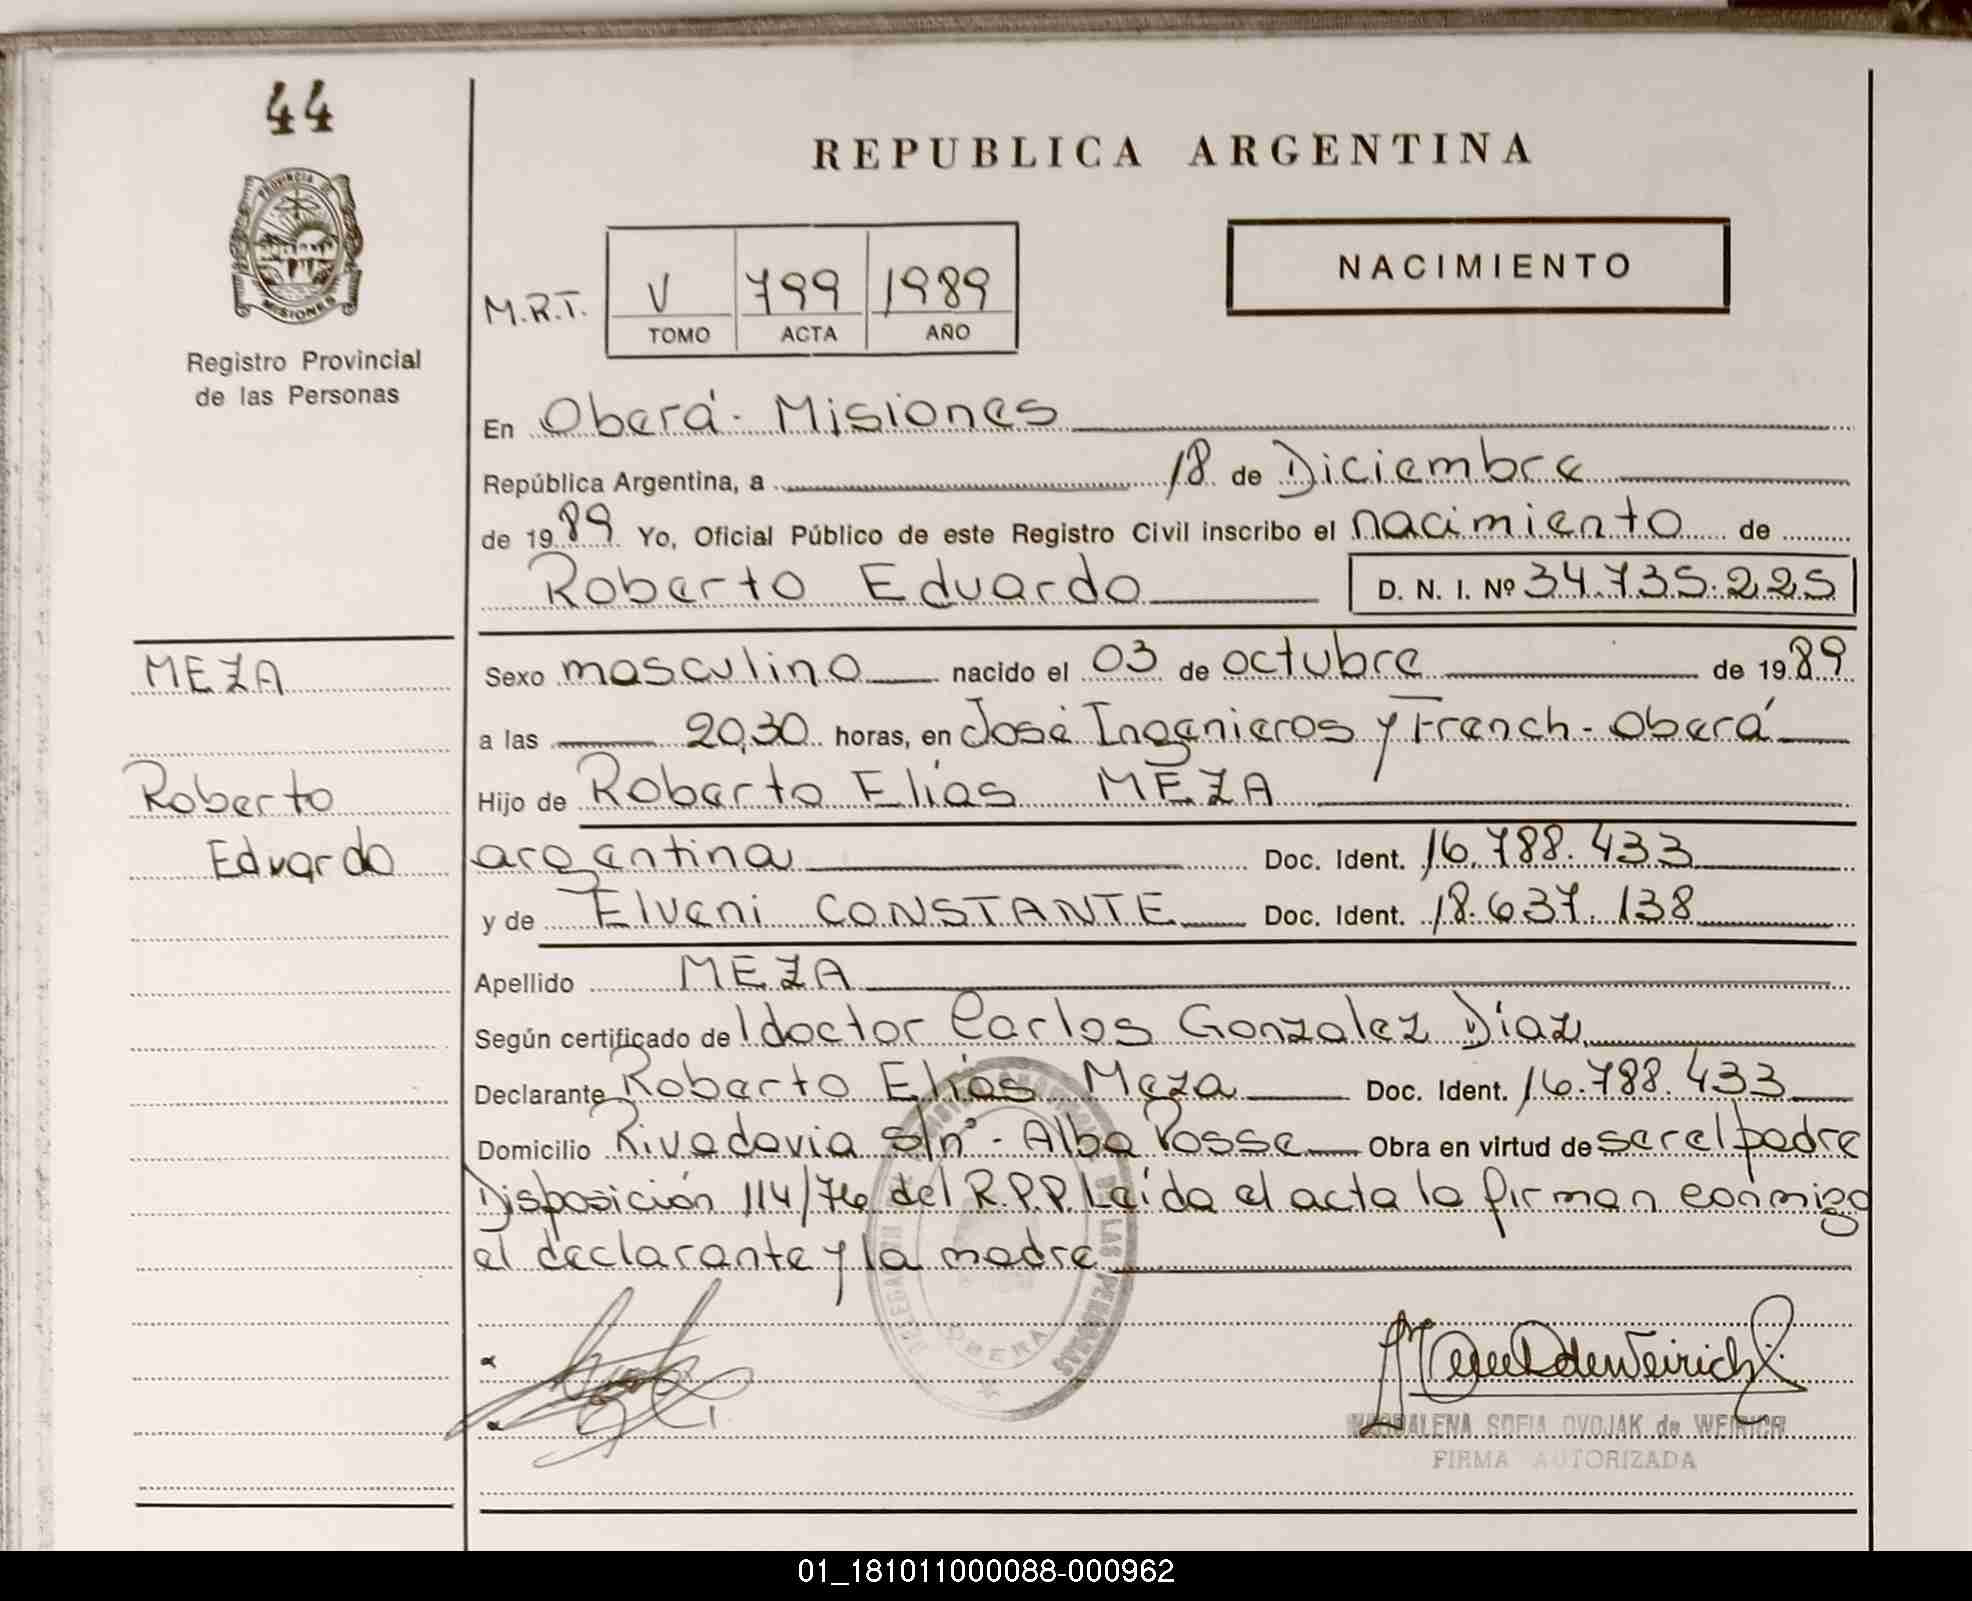 44
PROVINCIA DE
MISIONES
Registro Provincial
de las Personas
REPUBLICA ARGENTINA
NACIMIENTO
M.R.T. V 799 1989
TOMO ACTA AÑO
En Oberá - Misiones
República Argentina, a 18 de Diciembre
de 1989 Yo, Oficial Público de este Registro Civil inscribo el nacimiento de
Roberto Eduardo D. N. I. Nº 34.735.225
MEZA
Roberto
Eduardo
Sexo masculino nacido el 03 de octubre de 1989
a las 20,30 horas, en José Ingenieros y French - Oberá
Hijo de Roberto Elías MEZA
argentina Doc. Ident. 16.788.433
y de Elveni CONSTANTE Doc. Ident. 18.637.138
Apellido MEZA
Según certificado del doctor Carlos Gonzalez Díaz
Declarante Roberto Elías Meza Doc. Ident. 16.788.433
Domicilio Rivadavia s/nº - Alba Posse Obra en virtud de ser el padre
Disposición 114/76 del R.P.P. Leída el acta la firman conmigo
el declarante y la madre
DE LAS PERSONAS
OBERA
MAGDALENA SOFIA OVOJAK de WEIRICH
FIRMA AUTORIZADA
01_181011000088-000962